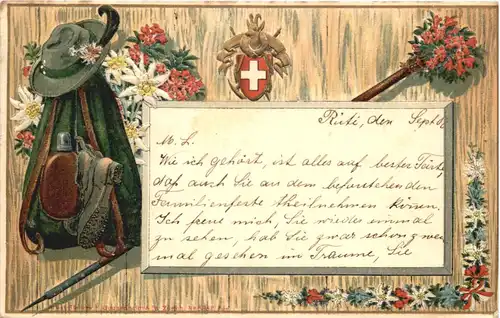 Rüti, den Sept 02
M. L.
Wie ich gehört, ist alles auf bester Törte,
daß auch Sie an dem bevorstehenden
Familienfeste theilnehmen können.
Ich freue mich, Sie wieder einmal
zu sehen, hab Sie zwar schon zwei
mal gesehen im Traume, Sie